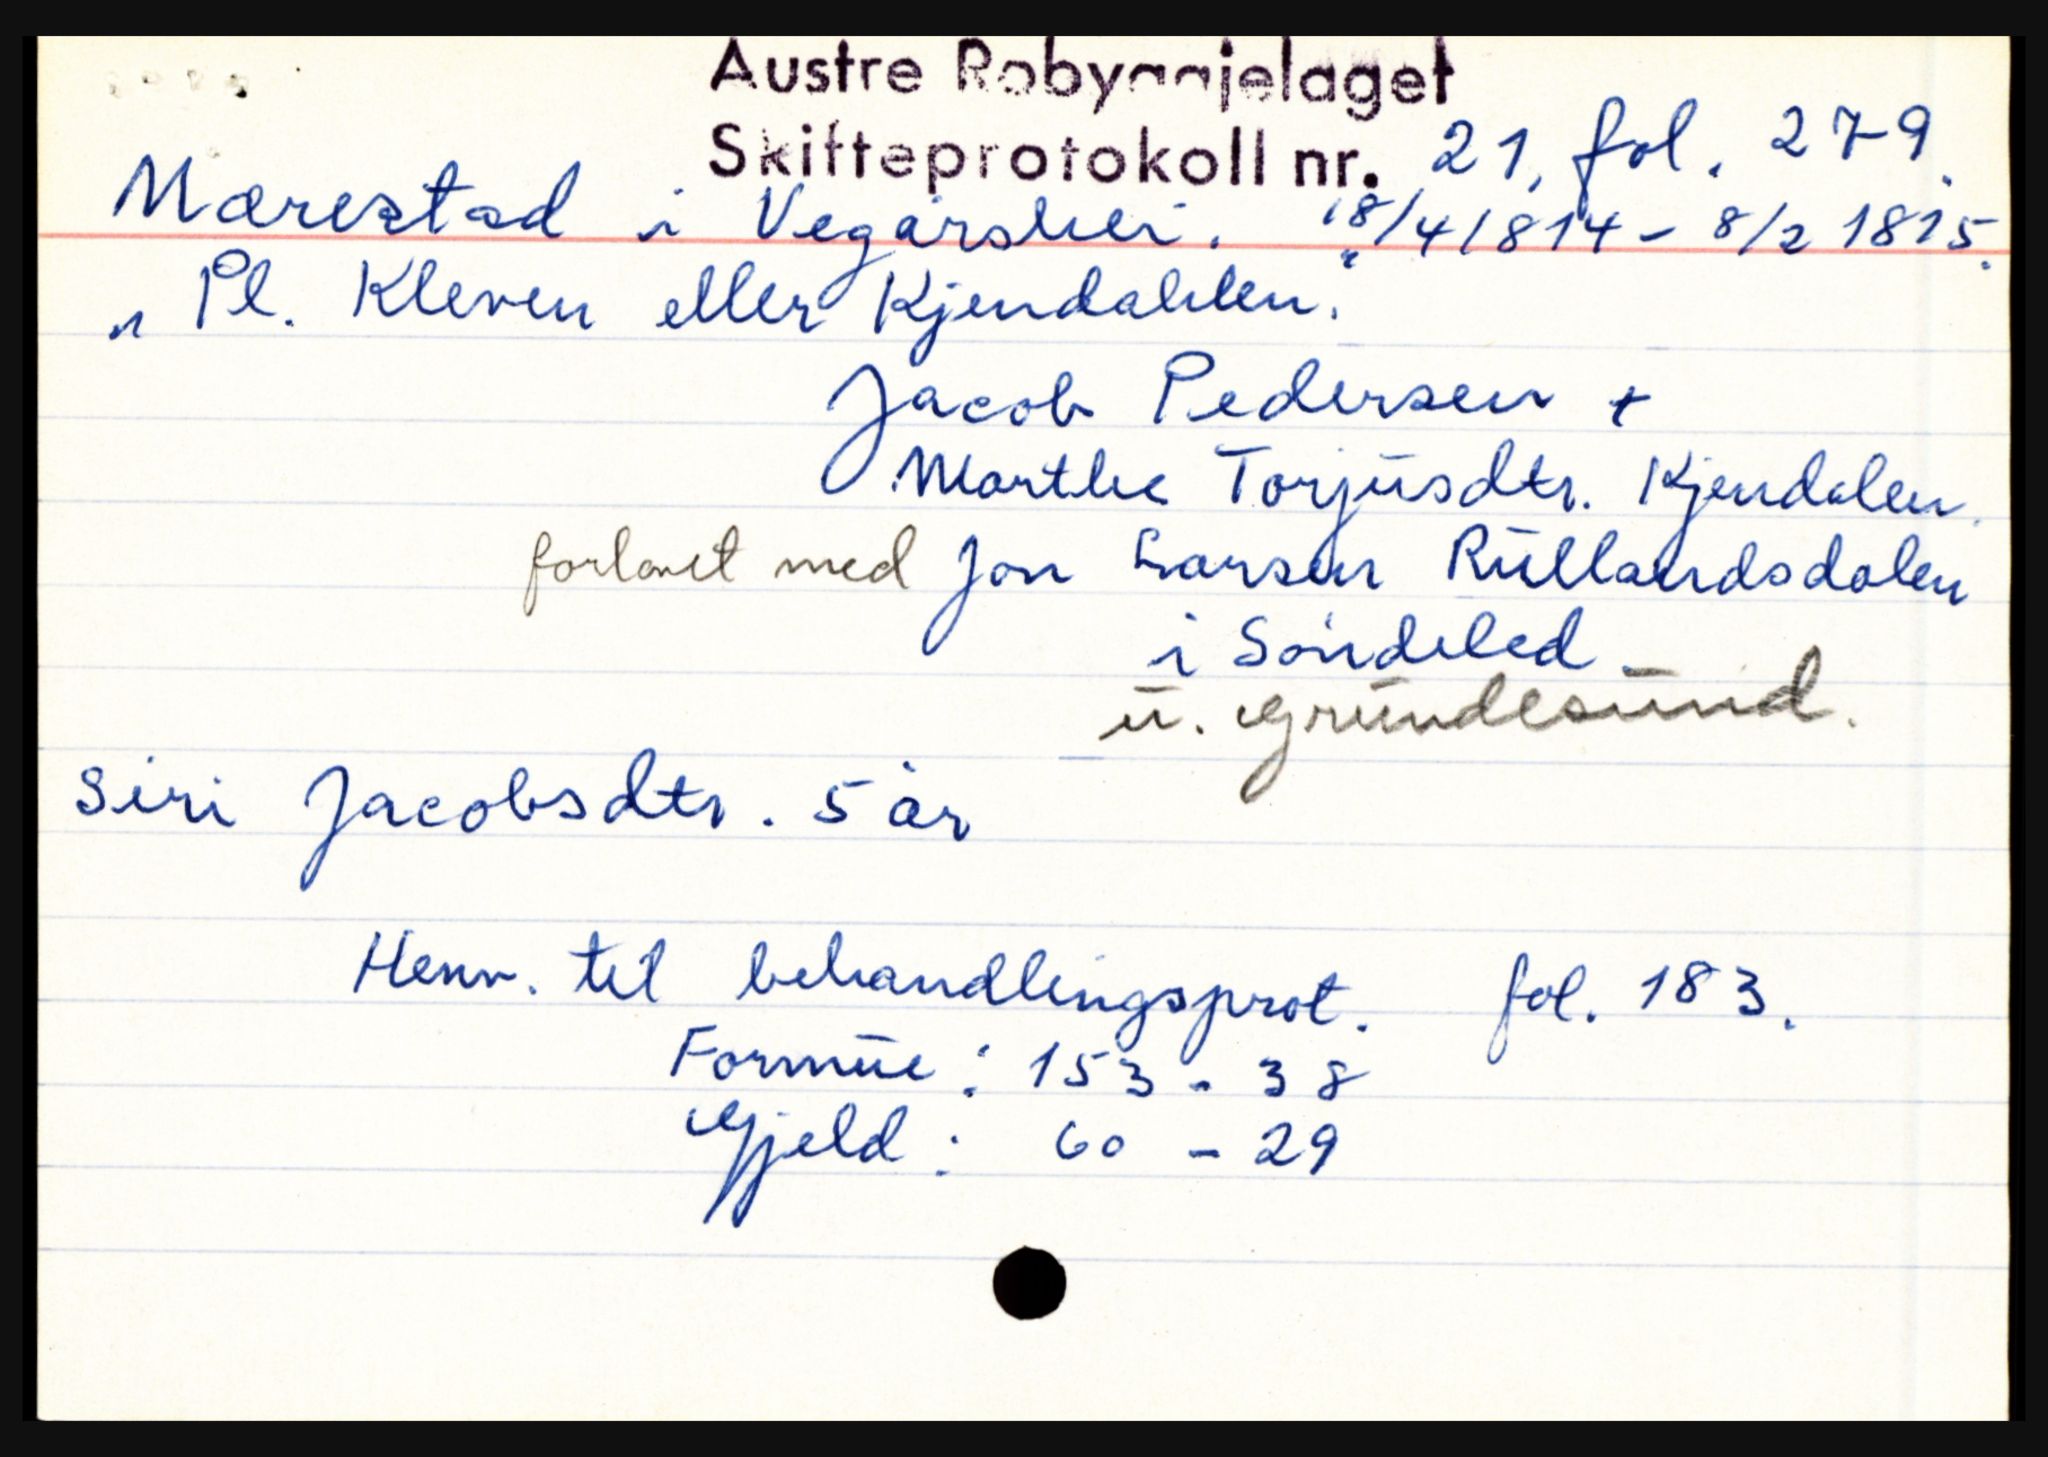 Austre Robyggjelaget
Skifteprotokoll nr. 21, fol. 279.
Mærestad i Vegårshei. 18/4 1814 - 8/2 1815.
"Pl. Kleven eller Kjendahlen."
Jacob Pedersen +
Marthe Torjusdtr. Kjendalen.
forlovet med Jon Larsen Rullandsdalen
i Söndeled
u. Grundesund.
Siri Jacobsdtr. 5 år
Henv. til behandlingsprot. fol. 183.
Formue: 153 - 38
Gjeld: 60 - 29